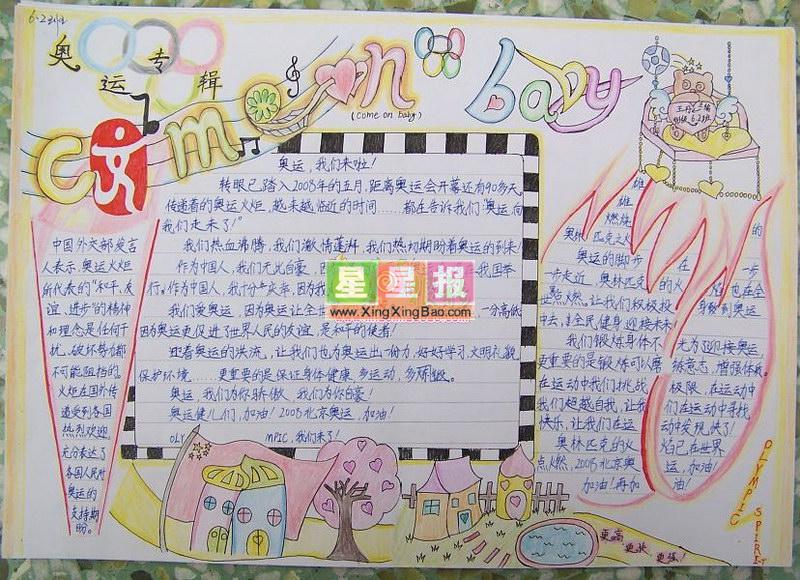 6.2班
奥运专辑
com on baby
(come on baby)
奥运,我们来啦!
转眼已踏入2008年的五月,距离奥运会开幕还有90多天。
传递着的奥运火炬,越来越临近的时间……都在告诉我们"奥运向
我们走来了!"
我们热血沸腾,我们激情蓬湃,我们热切期盼着奥运的到来!
作为中国人,我们无比自豪,因
我国举
行。作为中国人,我十分庆幸,因为我
我们爱运,因为奥运让全世
一分高低
因为奥运更促进了世界人民的友谊,是和平的使者!
迎着奥运的洪流,让我们也为奥运出一份力,好好学习,文明礼貌,
保护环境……更重要的是保证身体健康,多运动,多锻炼。
奥运,我们为你骄傲,我们为你自豪!
奥运健儿们,加油!2008北京奥运,加油!
OLY MPIC,我们来了!
中国外交部发言
人表示,奥运火炬
所代表的"和平、友
谊、进步"的精神
和理念是任何干
扰、破坏势力都
不可能阻挡的.
火炬在国外传
递受到各国
热烈欢迎,
充分表达了
各国人民对
奥运的
支持期
盼。
星星报
www.XingXingBao.com
雄
雄
燃烧
的
奥林匹克之火
在
奥运的脚步
一步
一步走近,奥林匹克的火
焰也在全
点燃,让我们积极投
身做到奥运
中去,全民健身迎接未来
我们锻炼身体不
光为迎接奥运,
更重要的是锻炼可以磨
练意志,增强体质。
在运动中我们挑战
极限,在运动中
我们超越自我,让我
们在运动中寻找
快乐,让我们在运
动中发现快了!
奥林匹克的火
焰已在世界
点燃,2008北京奥
运,加油!
加油!再加
油!
OLYMPIC SPIRIT
更高 更快 更强!